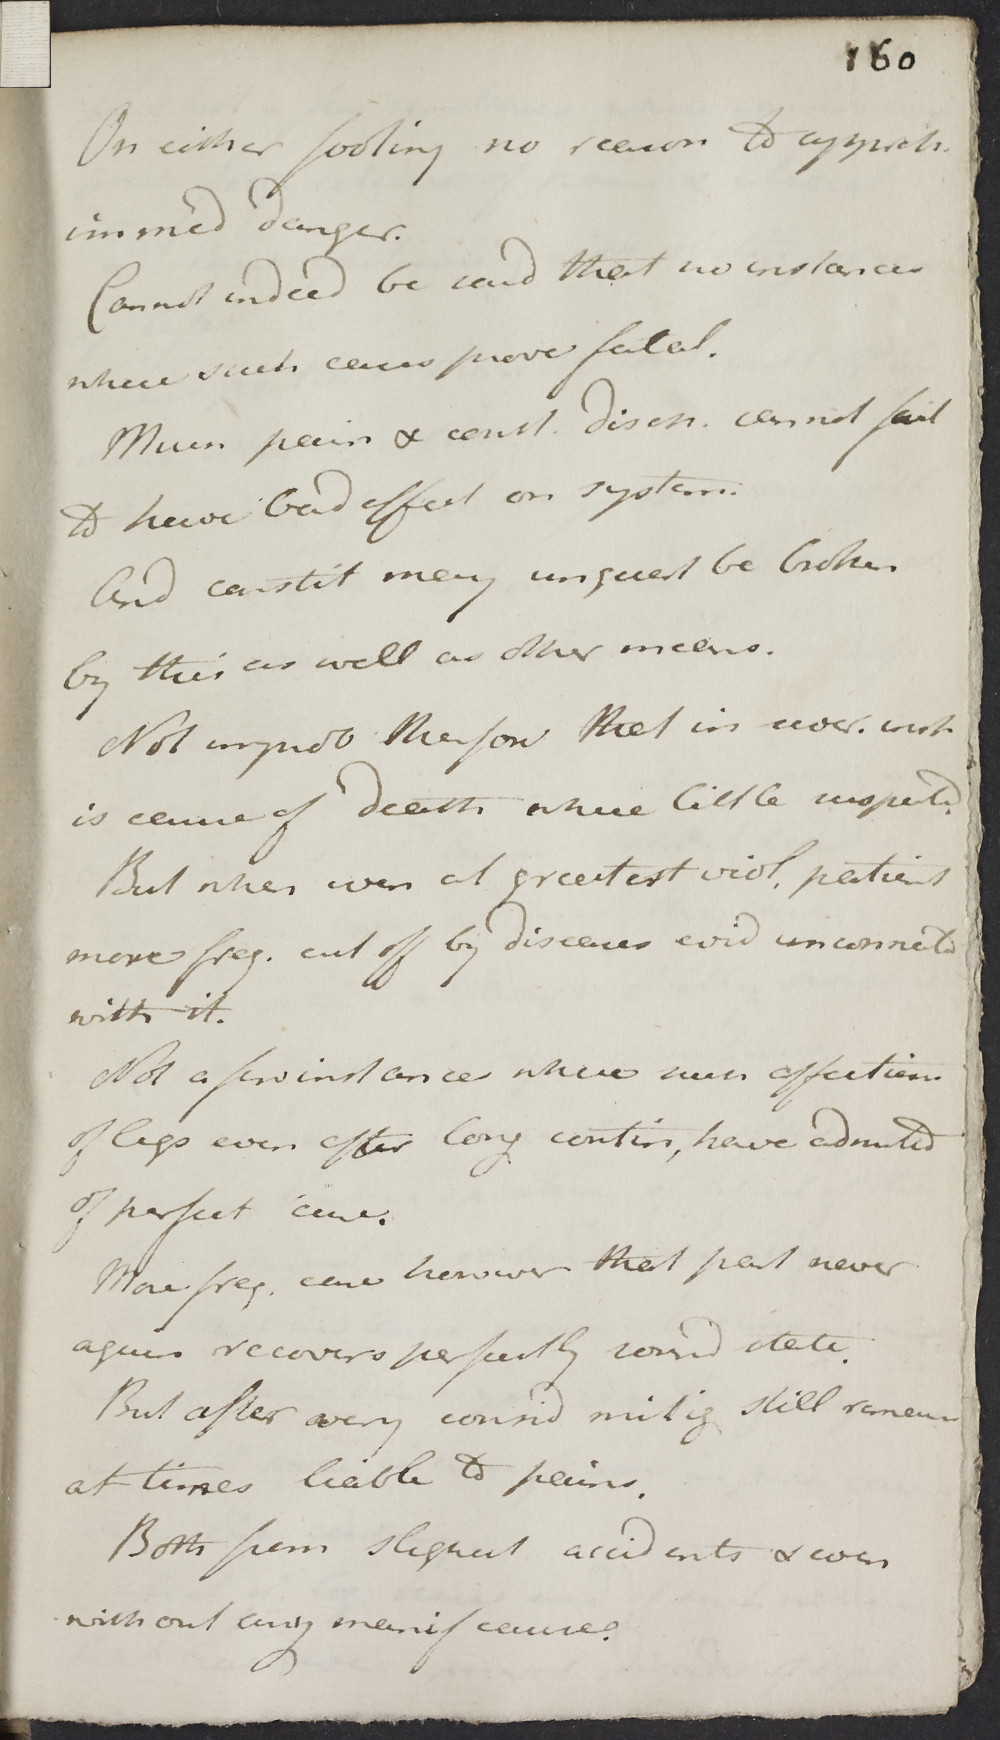 160
On either footing no reason to appreh.
immed danger.
Cannot indeed be said that no instances
where such cases prove fatal.
Much pain & const. disch. cannot fail
to have bad effect on system.
And constit may unquest be broken
by this as well as other means.
Not improb therefore that in sever. inst
is cause of death where little suspected.
But when even at greatest viol. patient
more freq. cut off by diseases evid unconnectd
with it.
Not a few instances where such affections
of legs even after long contin, have admitted
of perfect cure.
More freq. case however that part never
again recovers perfectly sound state.
But after very consid mitig still remain
at times liable to pains.
Both from slightest accidents & even
without any manif cause.